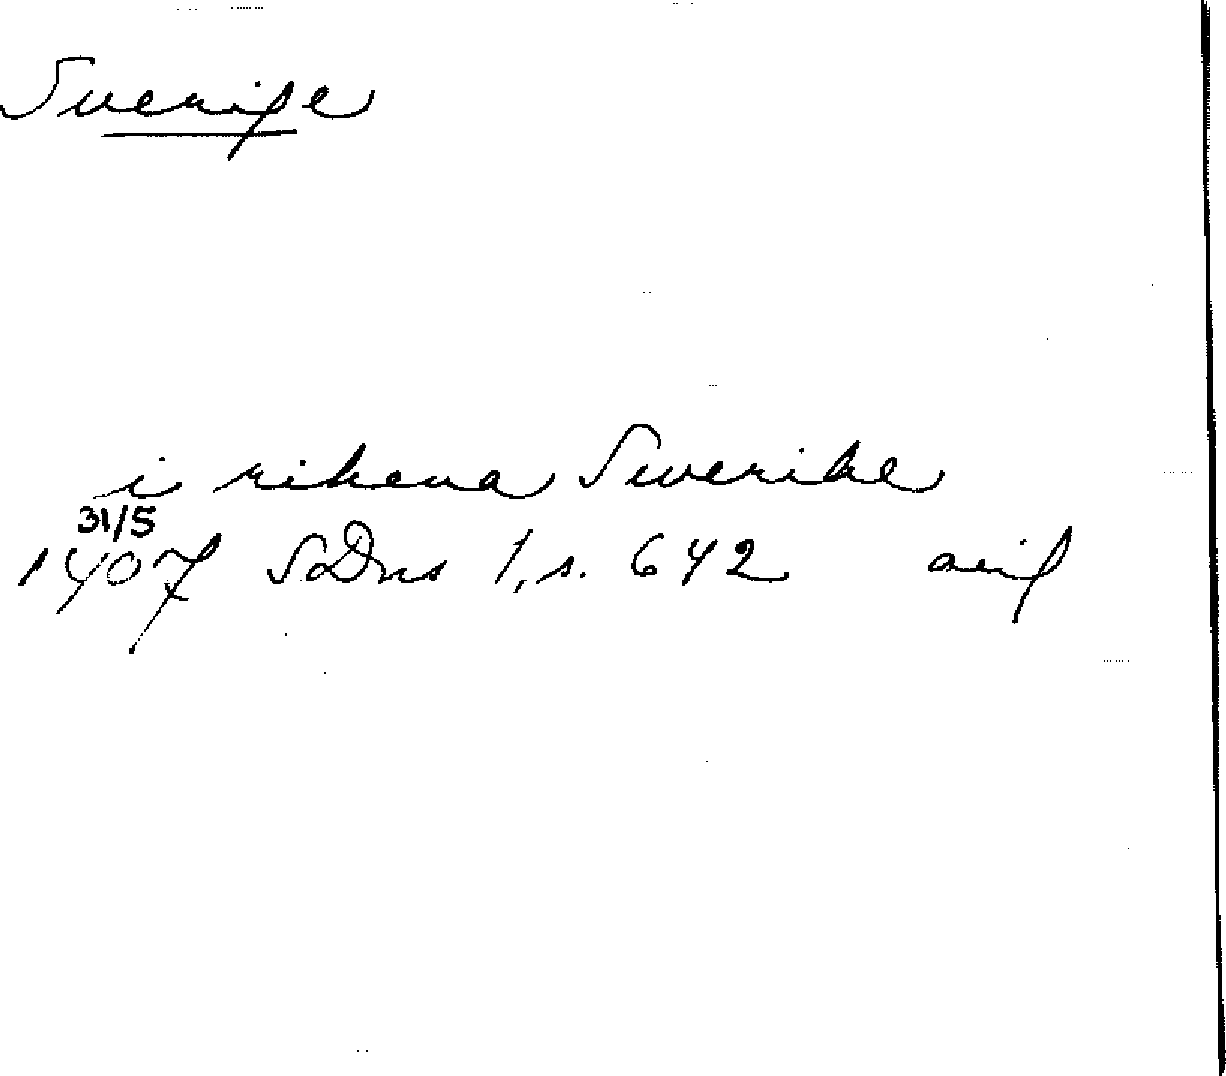 Sverige
i rikena Swerike
31/5
1407 SDns 1, s. 642 avskr